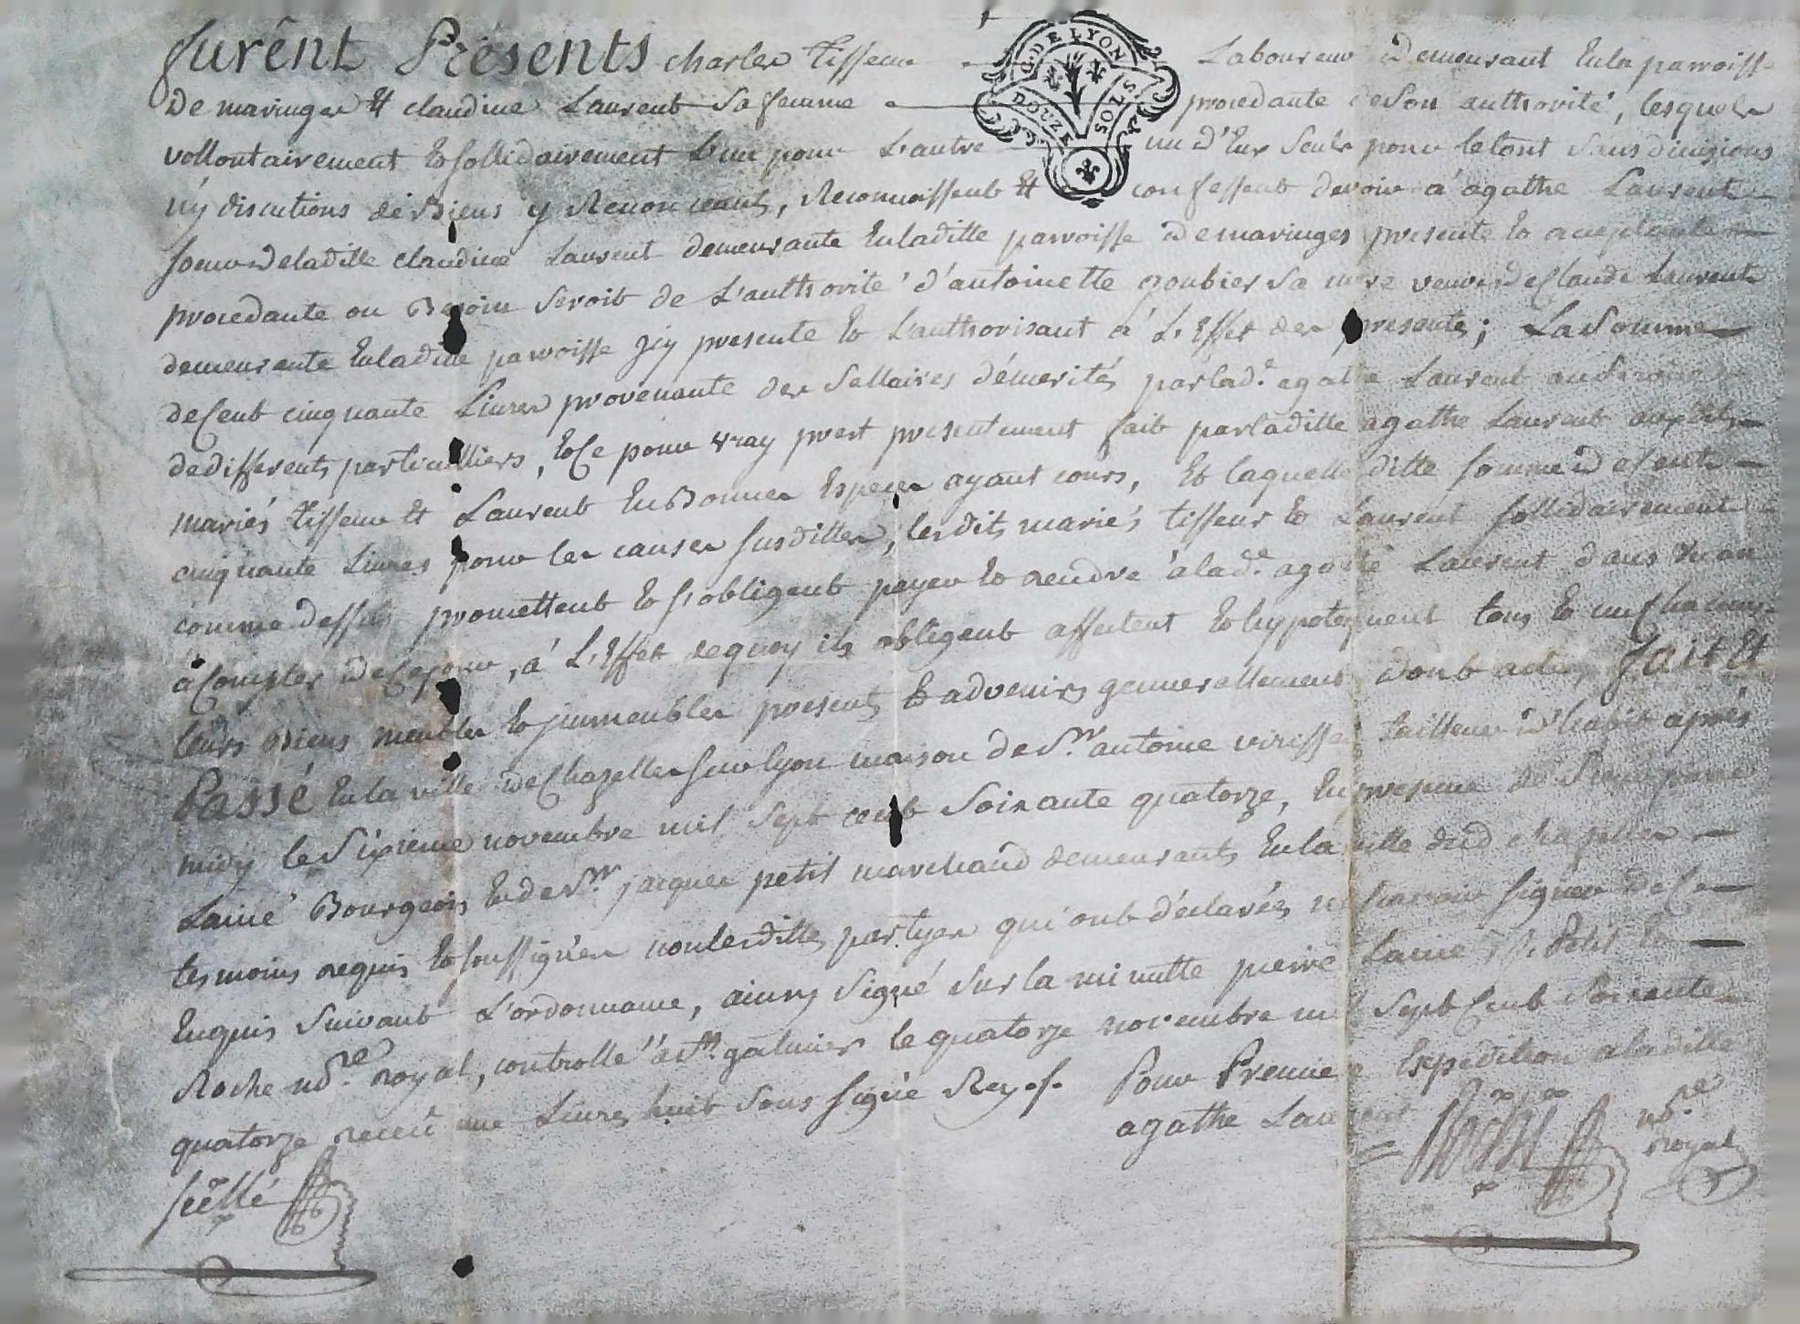 furênt Présents charles Tisseur Laboureur demeurant En la parroisse
De maringes Et claudine Laurent sa femme procedante de son authorité, lesquels
vollontairement Et sollidairement L'un pour L'autre un d'Eux seul pour le tout sans divisions
n'y discutions de Biens y Renonceant, Reconnoissent Et confessent devoir a' agathe Laurent
soeur de laditte claudine Laurent demeurante En laditte parroisse de maringes presente Et acceptante
procedante ou Besoin seroit de L'authorité d'antoinette roubier sa mere veuve de Claude Laurent
demeurante En laditte parroisse Jcy presente Et L'authorisant a' L'Effet des presentes; La Somme
de Cent cinquante Livres provenante des sallaires démerités par lad.e agathe Laurent au service
de differents particulliers, Et Ce pour vray prest presentement fait par laditte agathe Laurent auxdits
mariés Tisseur Et Laurent En Bonnes Especes ayant cours, Et laquelle ditte somme de Cent
cinquante Livres pour les causes susdittes, lesdits mariés tisseur Et Laurent sollidairement
comme dessus promettent Et s'obligent payer Et rendre a lad.e agathe Laurent dans un an
a Compter de Ce jour, a' L'Effet de quoy ils obligent affectent Et hypotequent tous Et un Chacuns
leurs Biens meubles Et jmmeubles presents Et advenirs generallement dont acte, Fait Et
Passé En la ville de Chazelles sur lyon maison de S.r antoine virisse tailleur d'habit après
midy le Sixieme novembre mil sept cent soixante quatorze, En presence de Sieur pierre
Lainé Bourgeois Et de S.r jacques petit marchand demeurants En la ville dud chazelles
tesmoins requis Et soussignés non lesdittes partyes qui ont déclarées ne sçavoir signer de Ce
Enquis suivant L'ordonnance, ainsy signé sur la minutte pierre Lainé, J. Petit Et
Roche no.re royal, controllé a St galmier le quatorze novembre mil sept Cent soixante
quatorze receu une Livre huit sous signé Rey. Pour Premiere Expedition a laditte
agathe Laurent
Roche no.re
royal
scellé
G. DE LYON
DOUZE SOLS